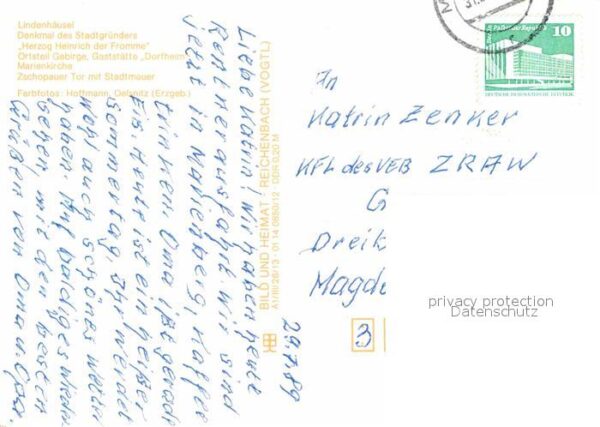 Lindenhäusel
Denkmal des Stadtgründers
„Herzog Heinrich der Fromme"
Ortsteil Gebirge, Gaststätte „Dorfheim"
Marienkirche
Zschopauer Tor mit Stadtmauer
Farbfotos: Hoffmann, Oelsnitz (Erzgeb.)
Liebe Katrin! Wir haben heute
Rentnerausfahrt. Wir sind
jetzt in Marienberg, Kaffee
trinken. Oma ißt gerade
Eis. Heute ist ein heißer
Sommertag. Ihr werdet
wohl auch schönes Wetter
haben. Auf baldiges Wieder-
sehen, mit den besten
Grüßen von Oma u. Opa.
29.7.89
BILD UND HEIMAT · REICHENBACH (VOGTL)
A1/III/26/13 · 01 14 0850/12 · DDR 0,20 M
10
An
Katrin Zenker
KFL des VEB ZRAW
G
Dreik
Magde
3
privacy protection
Datenschutz